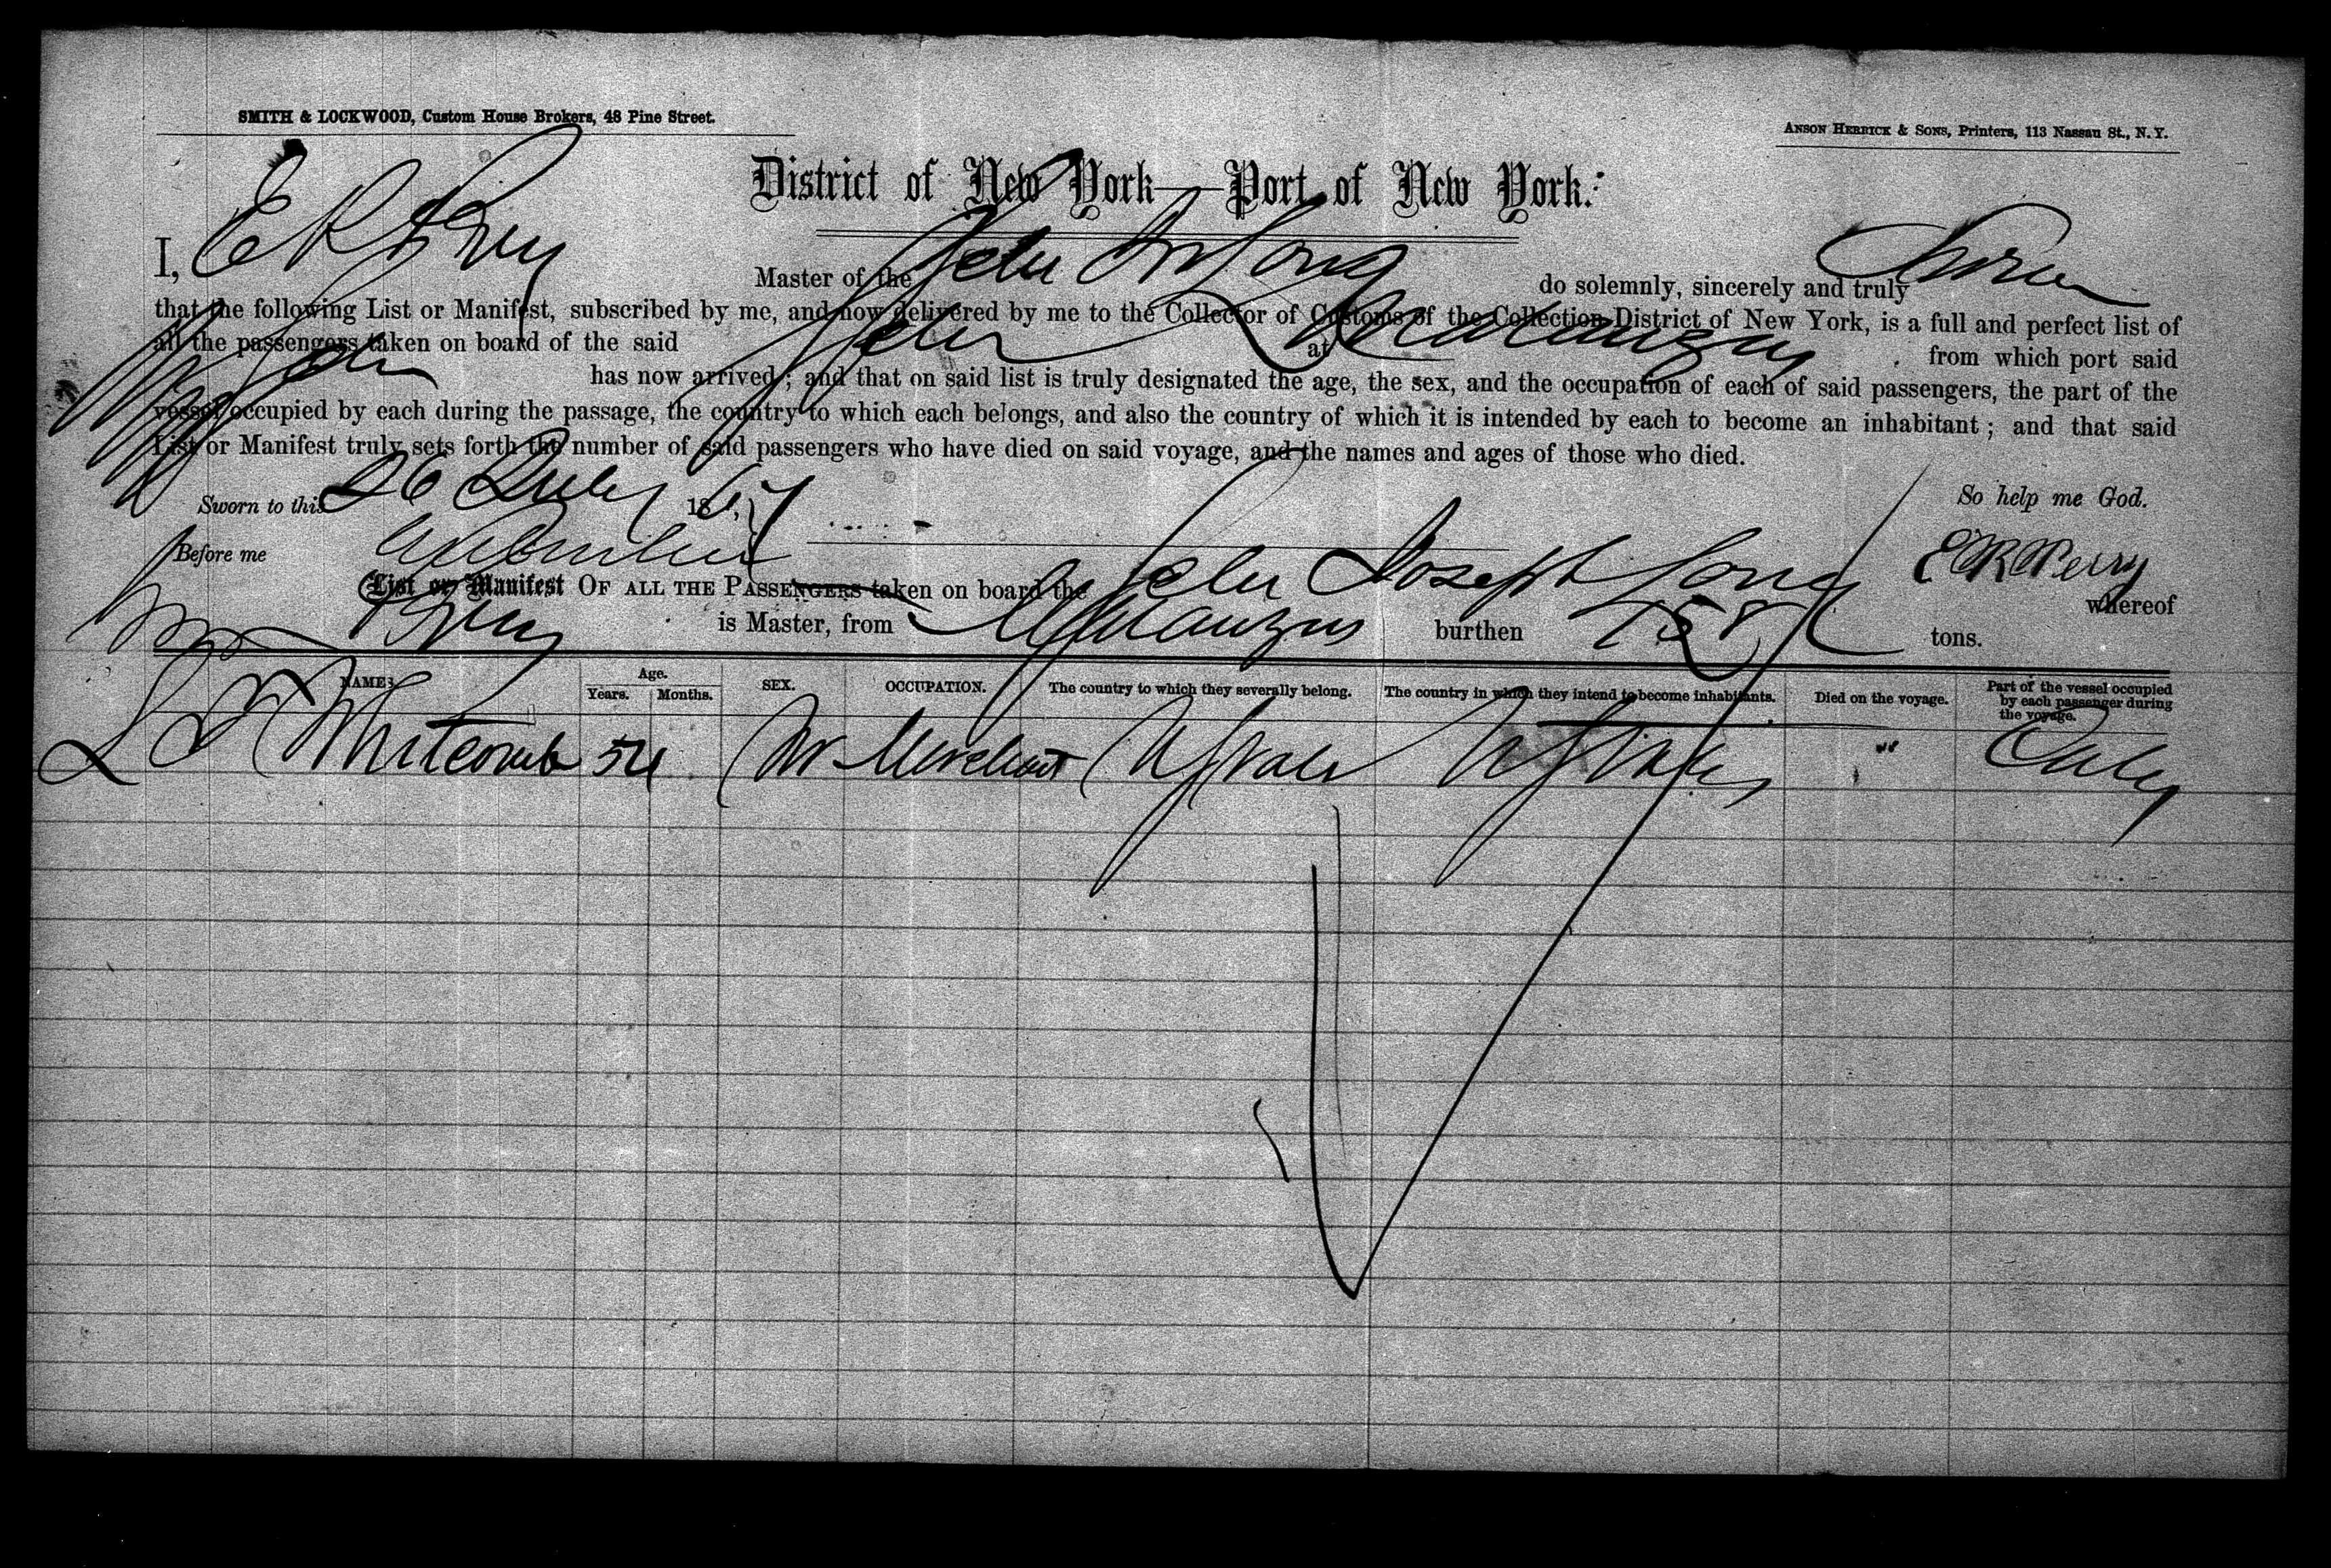 SMITH & LOCKWOOD, Custom House Brokers, 48 Pine Street.
ANSON HERRICK & SONS, Printers, 113 Nassau St., N. Y.
District of New York—Port of New York.
I, E R Perry Master of the Schr Long do solemnly, sincerely and truly Swear
that the following List or Manifest, subscribed by me, and now delivered by me to the Collector of Customs of the Collection District of New York, is a full and perfect list of
all the passengers taken on board of the said Schr at Matanzas from which port said
Schr has now arrived; and that on said list is truly designated the age, the sex, and the occupation of each of said passengers, the part of the
vessel occupied by each during the passage, the country to which each belongs, and also the country of which it is intended by each to become an inhabitant; and that said
List or Manifest truly sets forth the number of said passengers who have died on said voyage, and the names and ages of those who died.
Sworn to this 26 July 1867 So help me God.
Before me E R Perry
List or Manifest OF ALL THE PASSENGERS taken on board the Schr Joseph Long whereof
Perry is Master, from Matanzas burthen 158 tons.
NAMES Age. Years. Months. SEX. OCCUPATION. The country to which they severally belong. The country in which they intend to become inhabitants. Died on the voyage. Part of the vessel occupied by each passenger during the voyage.
Whitcomb 54 M Merchant U States U States " Cabin